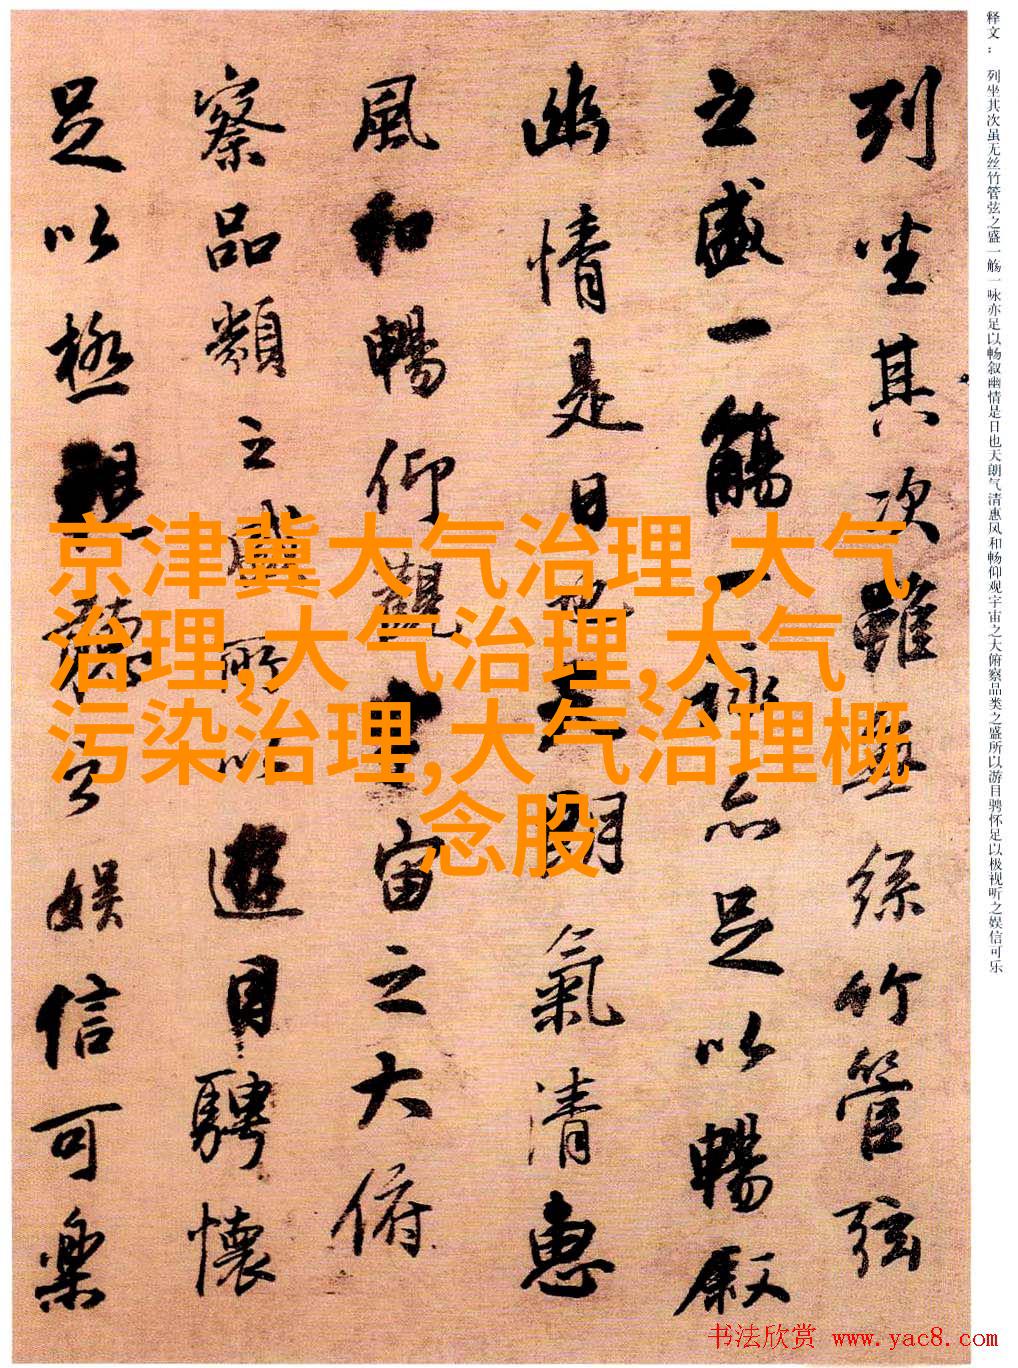 释文：列坐其次虽无丝竹管弦之盛一觞一咏亦足以畅叙幽情是日也天朗气清惠风和畅仰观宇宙之大俯察品类之盛所以游目骋怀足以极视听之娱信可乐
列坐其次雖無絲竹管弦
之盛一觴一詠亦足以暢叙
幽情是日也天朗氣清惠
風和暢仰觀宇宙之大俯
察品類之盛所以遊目騁懷
足以極視聽之娱信可樂
京津冀大气治理,大气
治理,大气治理,大气
污染治理,大气治理概
念股
书法欣赏 www.yac8.com